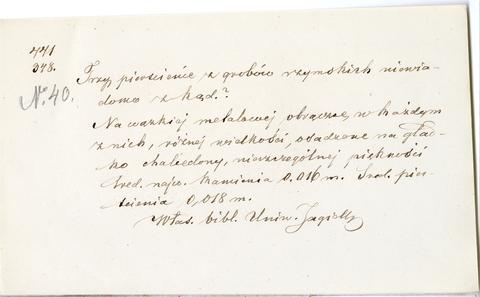 441
348.
No 40.
Trzy pierścieńce z grobów rzymskich niewia-
domo z kąd?
Na wązkiej metalowej obrączce, w każdym
z nich, różnej wielkości, osadzone na gład-
ko chalcedony, nieszczególnej piękności
Śred. najw. kamienia 0.016 m. Śred. pier-
ścienia 0,018 m.
Włas. bibl. Uniw. Jagiell.